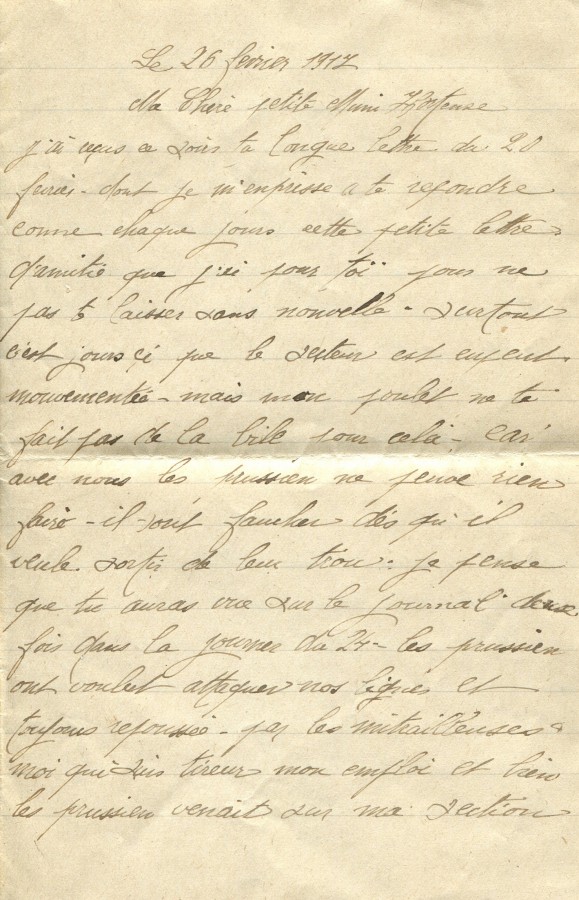 Le 26 fevrier 1917
Ma Chère petite Mimi Hortense
j'ai reçus ce soirs ta longue lettre du 20
fevrier - dont je m'enprisse a te repondre
comme chaque jours cette petite lettre
d'amitié que j'ai pour toï pour ne
pas te laisser sans nouvelle - surtout
c'est jours çi que le secteur est
mouvementée - mais mon poulet ne te
fait pas de la bile pour celà - car
avec nous les prussien ne peuve rien
faire - il sont faucher dès qu'il
veule sortir de leur trou - je pense
que tu auras vue sur le journal deux
fois dans la journer du 24 - les prussien
ont voulut attaquer nos lignes et
toujours repoussé - par les mitrailleuses
moi qui suis tireur mon emploi et bien
les prussien venait sur ma section